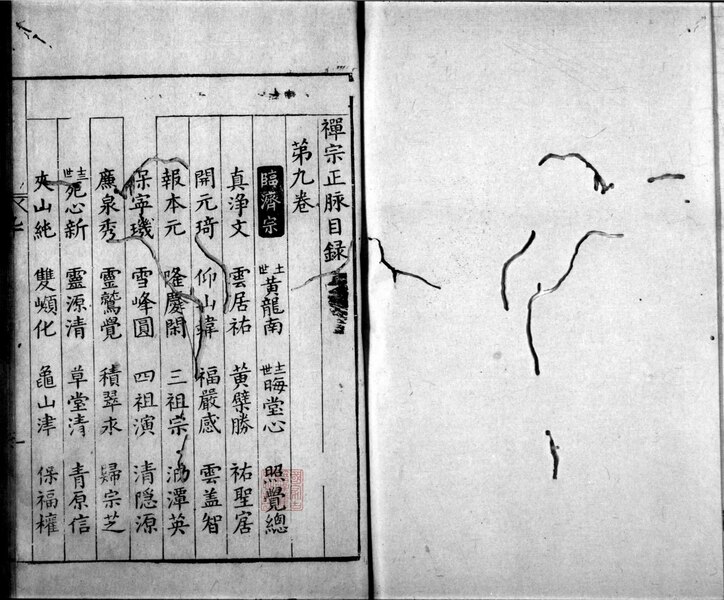 禪宗正脉目録
第九卷
臨濟宗 十一世 黃龍南 十二世 晦堂心 照覺總
真淨文 雲居祐 黃檗勝 祐聖𡨢
開元琦 仰山偉 福嚴感 雲盖智
報本元 隆慶閑 三祖宗 泐潭英
保寧璣 雪峰圓 四祖演 清隱源
廉泉秀 靈鷲覺 積翠永 歸宗芝
十三世 死心新 靈源清 草堂清 青原信
夾山純 雙嶺化 龜山津 保福權